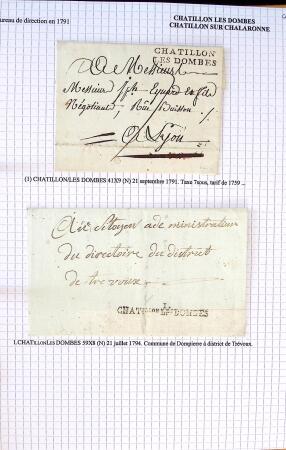 ureau de direction en 1791
CHATILLON LES DOMBES
CHATILLON SUR CHALARONNE
CHATILLON
LES DOMBES
A Messieurs
Messieurs jph
Négotiants, Rue Buisson
A Lyon
(1) CHATILLON/LES DOMBES 41X9 (N) 21 septembre 1791. Taxe 7sous, tarif de 1759 ..
Au Sitoyen administrateur
du directoire du district
de trevoux
CHATILLON LES DOMBES
1.CHATILLONLES DOMBES 59X8 (N) 21 juillet 1794. Commune de Dompierre à district de Trévoux.